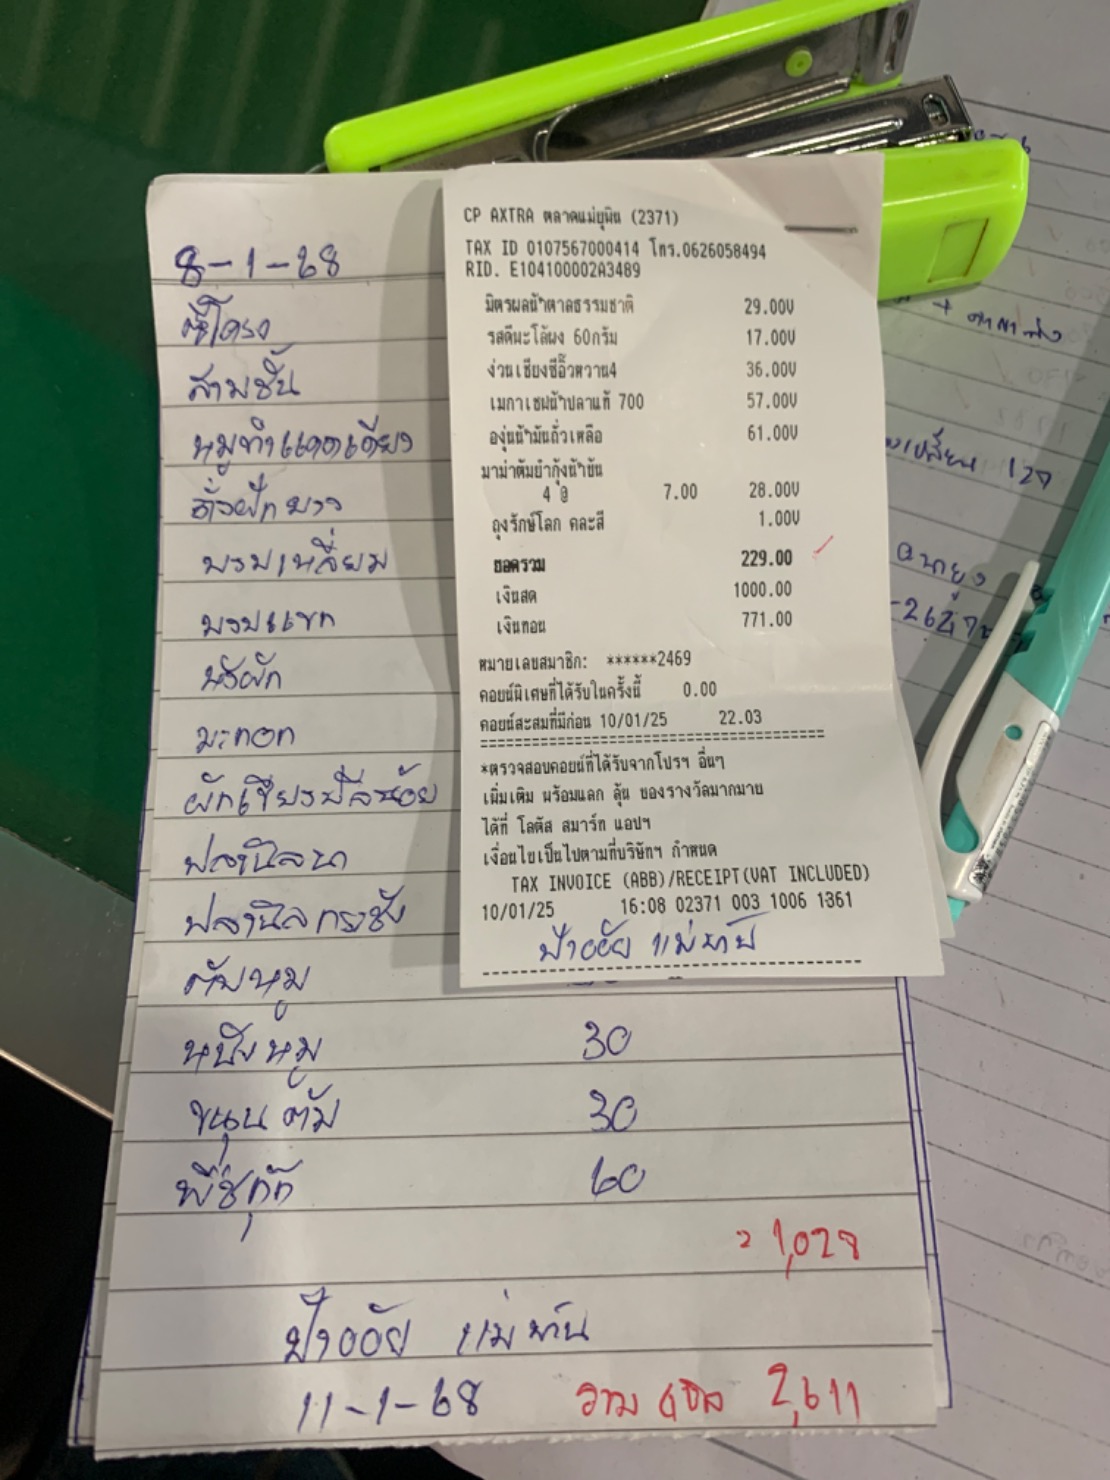 CP AXTRA ตลาดแม่ยุพิน (2371)
TAX ID 0107567000414 โทร.0626058494
RID. E104100002A3489
มิตรผลน้ำตาลธรรมชาติ 29.00V
รสดีมะโล้ผง 60กรัม 17.00V
ง่วนเชียงซีอิ๊วหวาน4 36.00V
เมกาเชฟน้ำปลาแท้ 700 57.00V
องุ่นน้ำมันถั่วเหลือ 61.00V
มาม่าต้มยำกุ้งน้ำข้น
4 @ 7.00 28.00V
ถุงรักษ์โลก คละสี 1.00V
ยอดรวม 229.00
เงินสด 1000.00
เงินทอน 771.00
หมายเลขสมาชิก: ******2469
คอยน์พิเศษที่ได้รับในครั้งนี้ 0.00
คอยน์สะสมที่มีก่อน 10/01/25 22.03
*ตรวจสอบคอยน์ที่ได้รับจากโปรฯ อื่นๆ
เพิ่มเติม พร้อมแลก ลุ้น ของรางวัลมากมาย
ได้ที่ โลตัส สมาร์ท แอปฯ
เงื่อนไขเป็นไปตามที่บริษัทฯ กำหนด
TAX INVOICE (ABB)/RECEIPT(VAT INCLUDED)
10/01/25 16:08 02371 003 1006 1361
ป้าออัย แม่บ้าน
8-1-68
ซี่โครง
สามชั้น
หมูทำแดดเดียว
ถั่วฝักยาว
บวบเหลี่ยม
บวบแขก
หัวผัก
มะกอก
ปลานิลนา
ปลานิลกระชัง
ตับหมู
หนังหมู 30
ขนุนต้ม 30
60
= 1,028
ป้าออัย แม่บ้าน
11-1-68 รวม 4 บิล 2,611